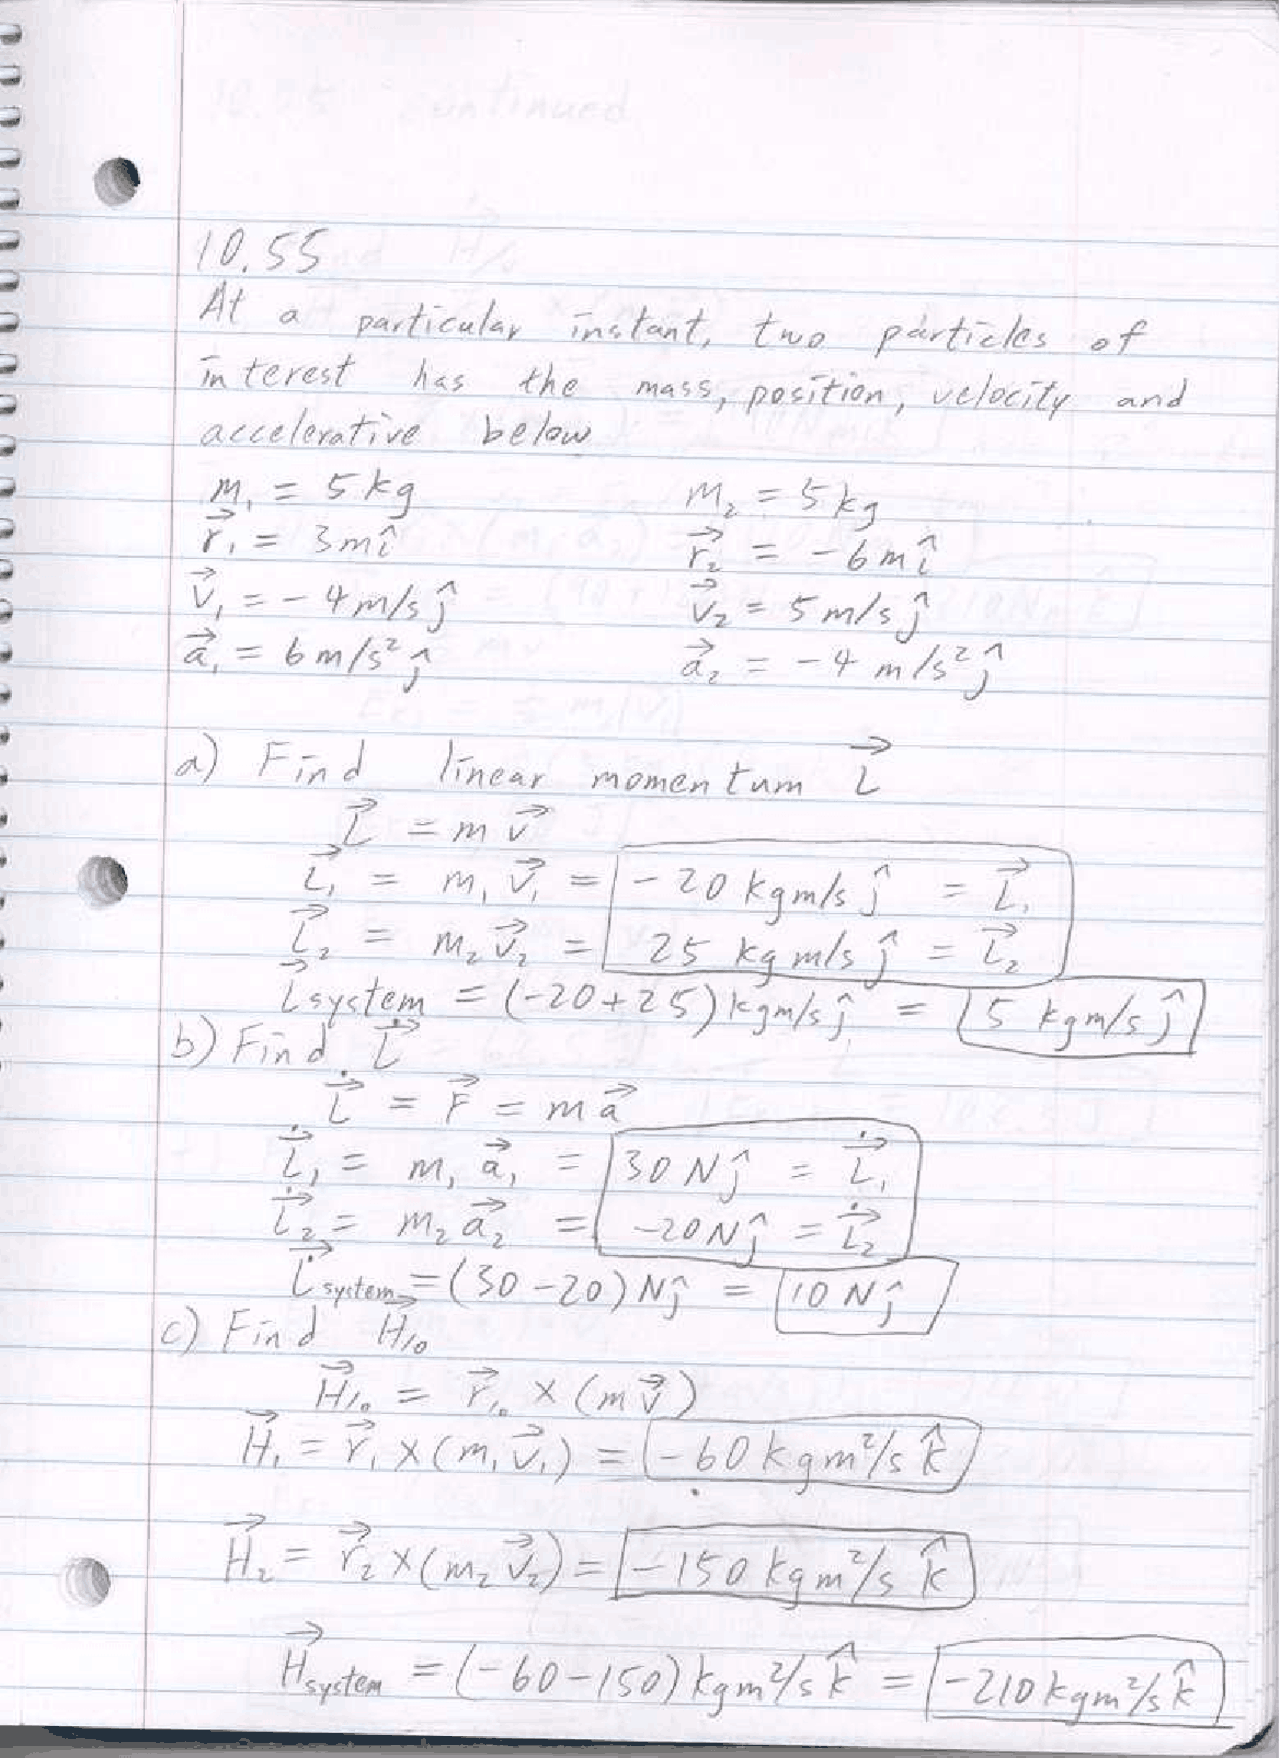 10.55
At a particular instant, two particles of
interest has the mass, position, velocity and
accelerative below
m₁ = 5 kg m₂ = 5 kg
r⃗₁ = 3 m î r⃗₂ = -6 m î
v⃗₁ = -4 m/s ĵ v⃗₂ = 5 m/s ĵ
a⃗₁ = 6 m/s² ĵ a⃗₂ = -4 m/s² ĵ
a) Find linear momentum L⃗
L⃗ = m v⃗
L⃗₁ = m₁ v⃗₁ = -20 kgm/s ĵ = L⃗₁
L⃗₂ = m₂ v⃗₂ = 25 kgm/s ĵ = L⃗₂
L⃗system = (-20+25) kgm/s ĵ = 5 kgm/s ĵ
b) Find L⃗̇
L⃗̇ = F⃗ = m a⃗
L⃗̇₁ = m₁ a⃗₁ = 30 N ĵ = L⃗̇₁
L⃗̇₂ = m₂ a⃗₂ = -20 N ĵ = L⃗̇₂
L⃗̇system = (30-20) N ĵ = 10 N ĵ
c) Find H⃗/₀
H⃗/₀ = r⃗/₀ × (m v⃗)
H⃗₁ = r⃗₁ × (m₁ v⃗₁) = -60 kgm²/s k̂
H⃗₂ = r⃗₂ × (m₂ v⃗₂) = -150 kgm²/s k̂
H⃗system = (-60-150) kgm²/s k̂ = -210 kgm²/s k̂